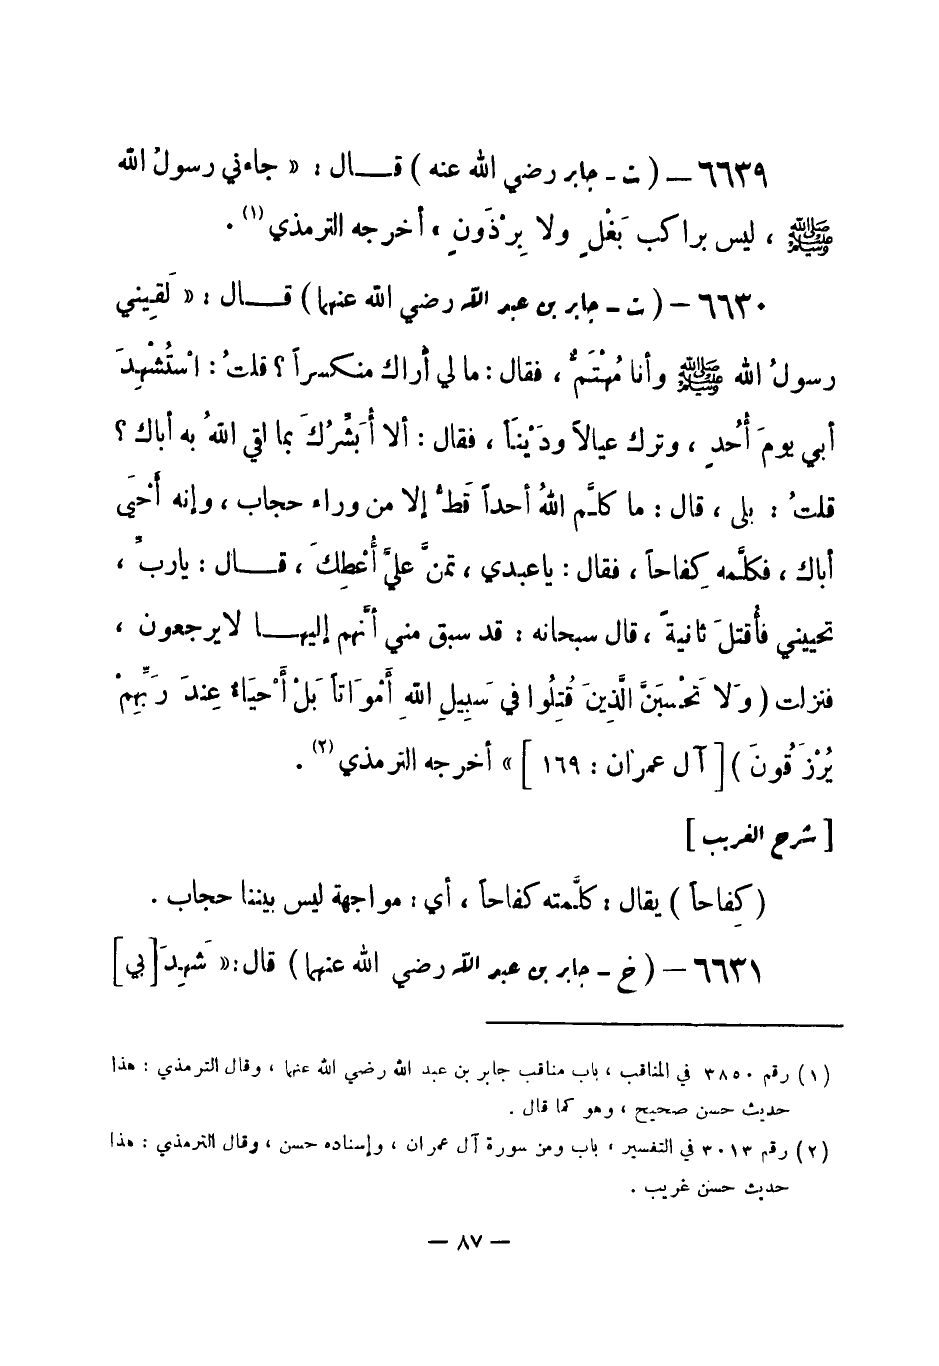 ٦٦٣٩ – ( ت - جابر رضي الله عنه ) قـــال : « جاءني رسولُ الله
ﷺ ، ليس براكب بَغْلٍ ولا بِرْذَونٍ » أخرجه الترمذي (١) .
٦٦٣٠ – ( ت - جابر بن عبد الله رضي الله عنهما ) قـــال : « لَقِيَني
رسولُ الله ﷺ وأنا مُهْتَمٌّ ، فقال : ما لي أراك منكسراً ؟ قلتُ : اسْتُشْهِدَ
أبي يومَ أُحُدٍ ، وترك عيالاً ودَيْناً ، فقال : ألا أُبَشِّرُكَ بما لقي اللهُ به أباك ؟
قلتُ : بلى ، قال : ما كلَّم اللهُ أحداً قَطُّ إلا من وراء حجاب ، وإنه أَحْيَى
أباك ، فكلَّمه كِفاحاً ، فقال : يا عبدي ، تمنَّ عليَّ أُعْطِكَ ، قـــال : ياربِّ ،
تحييني فأُقتلَ ثانيةً ، قال سبحانه : قد سبق مني أنَّهم إليهـــا لا يرجعون ،
فنزلت ( وَلَا تَحْسَبَنَّ الَّذِينَ قُتِلُوا في سَبِيلِ اللهِ أَمْوَاتاً بَلْ أَحْيَاءٌ عِندَ رَبِّهِمْ
يُرْزَقُونَ ) [ آل عمران : ١٦٩ ] » أخرجه الترمذي (٢) .
[ شرح الغريب ]
( كِفاحاً ) يقال : كلَّمته كفاحاً ، أي : مواجهة ليس بيننا حجاب .
٦٦٣١ – ( خ - جابر بن عبد الله رضي الله عنهما ) قال : « شَهِدَ [بي]
(١) رقم ٣٨٥٠ في المناقب ، باب مناقب جابر بن عبد الله رضي الله عنهما ، وقال الترمذي : هذا
حديث حسن صحيح ، وهو كما قال .
(٢) رقم ٣٠١٣ في التفسير ، باب ومن سورة آل عمران ، وإسناده حسن ، وقال الترمذي : هذا
حديث حسن غريب .
– ٨٧ –